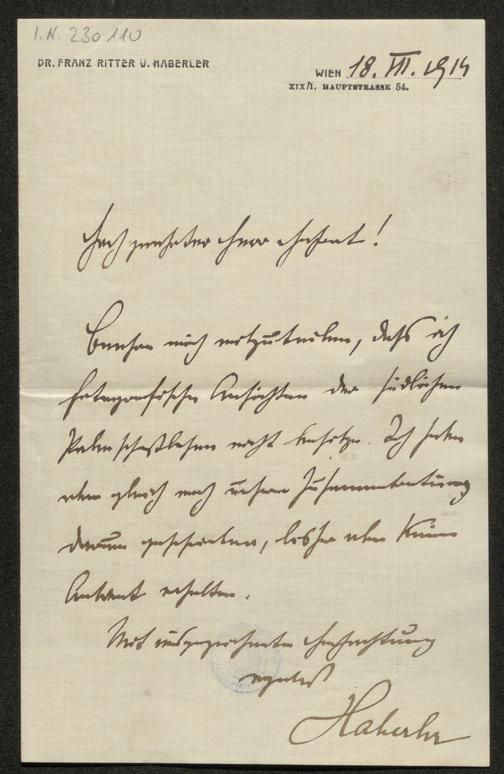 I.N. 230110
DR. FRANZ RITTER V. HABERLER
WIEN 18. VII. 1914
XIX/1, HAUPTSTRASSE 54.
Hochgeehrter Herr
Beehre mich mitzuteilen, daß ich
fotografische Ansichten der südlichen
nicht besitze. Ich habe
aber gleich nach unserer Zusammenkunft
darum geschrieben, bisher aber keine
Antwort erhalten.
Mit ausgezeichneter Hochachtung
ergebenst
Haberler